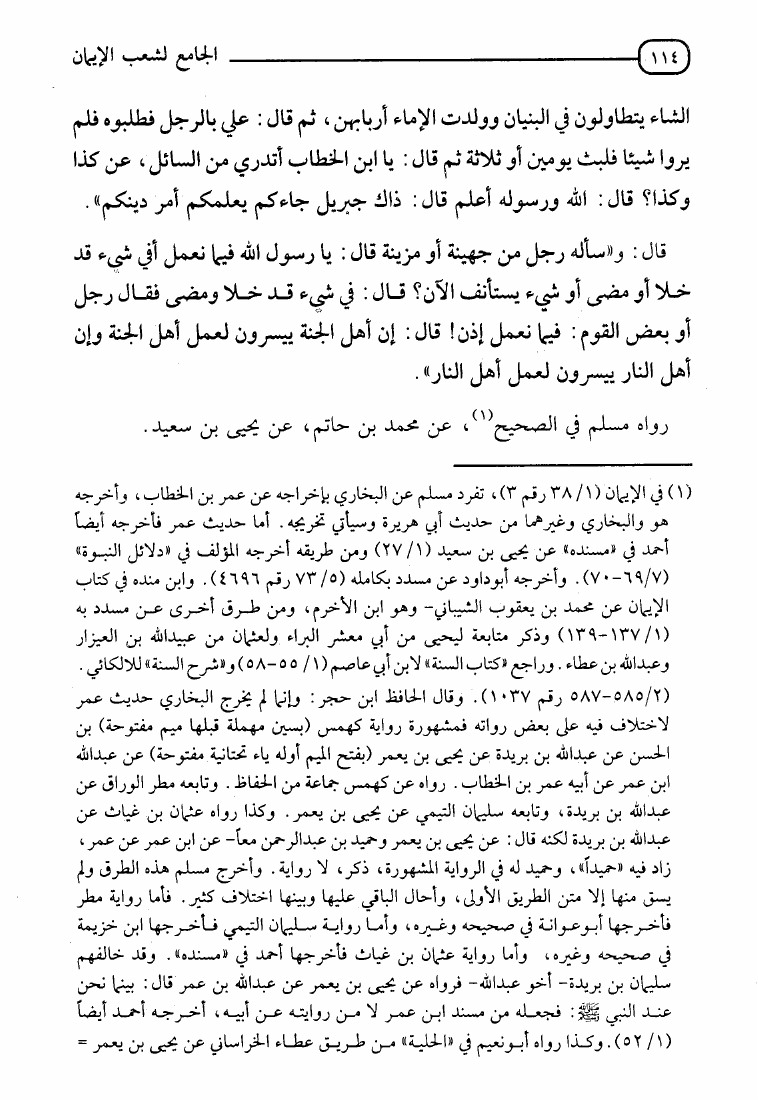 ١١٤ الجامع لشعب الإيمان
الشاء يتطاولون في البنيان وولدت الإماء أربابهن، ثم قال: علي بالرجل فطلبوه فلم
يروا شيئا فلبث يومين أو ثلاثة ثم قال: يا ابن الخطاب أتدري من السائل، عن كذا
وكذا؟ قال: الله ورسوله أعلم قال: ذاك جبريل جاءكم يعلمكم أمر دينكم».
قال: و«سأله رجل من جهينة أو مزينة قال: يا رسول الله فيما نعمل أفي شيء قد
خلا أو مضى أو شيء يستأنف الآن؟ قال: في شيء قد خلا ومضى فقال رجل
أو بعض القوم: فيما نعمل إذن! قال: إن أهل الجنة ييسرون لعمل أهل الجنة وإن
أهل النار ييسرون لعمل أهل النار».
رواه مسلم في الصحيح(١)، عن محمد بن حاتم، عن يحيى بن سعيد.
(١) في الإيمان (١/ ٣٨ رقم ٣)، تفرد مسلم عن البخاري بإخراجه عن عمر بن الخطاب، وأخرجه
هو والبخاري وغيرهما من حديث أبي هريرة وسيأتي تخريجه. أما حديث عمر فأخرجه أيضاً
أحمد في «مسنده» عن يحيى بن سعيد (١/ ٢٧) ومن طريقه أخرجه المؤلف في «دلائل النبوة»
(٧/ ٦٩-٧٠). وأخرجه أبوداود عن مسدد بكامله (٥/ ٧٣ رقم ٤٦٩٦). وابن منده في كتاب
الإيمان عن محمد بن يعقوب الشيباني- وهو ابن الأخرم، ومن طرق أخرى عن مسدد به
(١/ ١٣٧-١٣٩) وذكر متابعة ليحيى من أبي معشر البراء ولعثمان من عبيدالله بن العيزار
وعبدالله بن عطاء. وراجع «كتاب السنة» لابن أبي عاصم (١/ ٥٥-٥٨) و«شرح السنة» للالكائي.
(٢/ ٥٨٥-٥٨٧ رقم ١٠٣٧). وقال الحافظ ابن حجر: وإنما لم يخرج البخاري حديث عمر
لاختلاف فيه على بعض رواته فمشهورة رواية كهمس (بسين مهملة قبلها ميم مفتوحة) بن
الحسن عن عبدالله بن بريدة عن يحيى بن يعمر (بفتح الميم أوله ياء تحتانية مفتوحة) عن عبدالله
ابن عمر عن أبيه عمر بن الخطاب. رواه عن كهمس جماعة من الحفاظ. وتابعه مطر الوراق عن
عبدالله بن بريدة، وتابعه سليمان التيمي عن يحيى بن يعمر. وكذا رواه عثمان بن غياث عن
عبدالله بن بريدة لكنه قال: عن يحيى بن يعمر وحميد بن عبدالرحمن معاً- عن ابن عمر عن عمر،
زاد فيه «حميداً»، وحميد له في الرواية المشهورة، ذكر، لا رواية. وأخرج مسلم هذه الطرق ولم
يسق منها إلا متن الطريق الأولى، وأحال الباقي عليها وبينها اختلاف كثير. فأما رواية مطر
فأخرجها أبوعوانة في صحيحه وغيره، وأما رواية سليمان التيمي فأخرجها ابن خزيمة
في صحيحه وغيره، وأما رواية عثمان بن غياث فأخرجها أحمد في «مسنده». وقد خالفهم
سليمان بن بريدة- أخو عبدالله- فرواه عن يحيى بن يعمر عن عبدالله بن عمر قال: بينما نحن
عند النبي ﷺ: فجعله من مسند ابن عمر لا من روايته عن أبيه، أخرجه أحمد أيضاً
(١/ ٥٢). وكذا رواه أبونعيم في «الحلية» من طريق عطاء الخراساني عن يحيى بن يعمر =